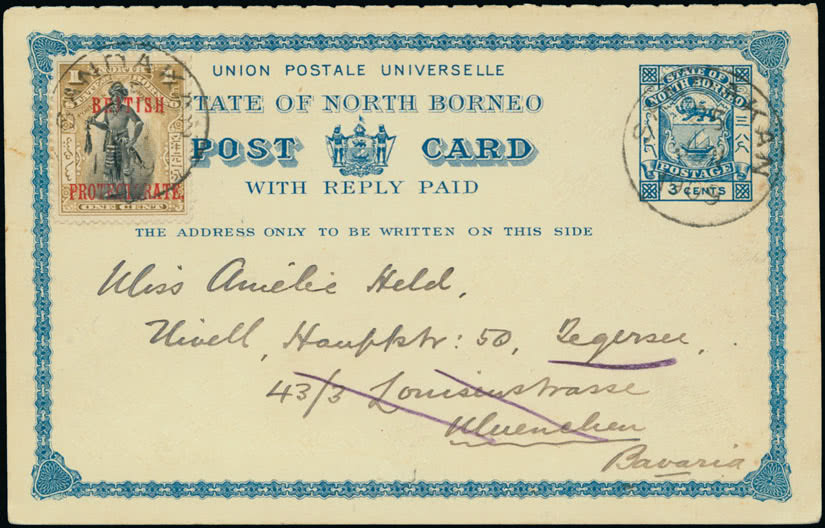 UNION POSTALE UNIVERSELLE
STATE OF NORTH BORNEO
POST CARD
WITH REPLY PAID
THE ADDRESS ONLY TO BE WRITTEN ON THIS SIDE
BRITISH
PROTECTORATE.
ONE CENT
SANDAKAN
STATE OF
NORTH BORNEO
POSTAGE
3 CENTS
SANDAKAN
1909
Miss Amélie Held,
Hauptstr: 50, Tegersee,
43/3 Louisenstrasse
Muenchen
Bavaria